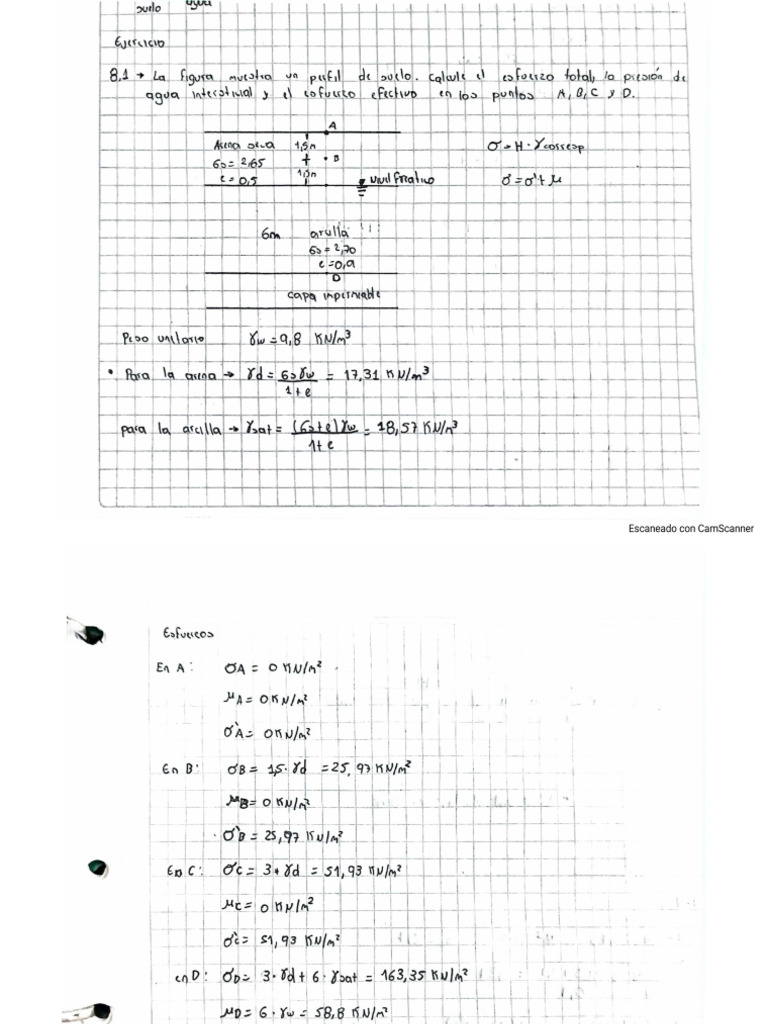 suelo agua
Ejercicio
8.1 → La figura muestra un perfil de suelo. Calcule el esfuerzo total, la presión de
agua intersticial y el esfuerzo efectivo en los puntos A, B, C y D.
A
Arena seca 1,5m
Gs = 2,65 B
e = 0,5 1,5m nivel freatico
σ = H · γ corresp
σ = σ' + μ
6m arcilla
Gs = 2,70
e = 0,9
D
capa impermiable
Peso unitario γw = 9,8 KN/m³
• Para la arena → γd = Gs γw / 1 + e = 17,31 KN/m³
para la arcilla → γsat = (Gs + e) γw / 1 + e = 18,57 KN/m³
Escaneado con CamScanner
Esfuerzos
En A: σA = 0 KN/m²
μA = 0 KN/m²
σ'A = 0 KN/m²
En B: σB = 1,5 · γd = 25,97 KN/m²
μB = 0 KN/m²
σ'B = 25,97 KN/m²
En C: σC = 3 * γd = 51,93 KN/m²
μC = 0 KN/m²
σ'C = 51,93 KN/m²
en D: σD = 3 · γd + 6 · γsat = 163,35 KN/m²
μD = 6 · γw = 58,8 KN/m²